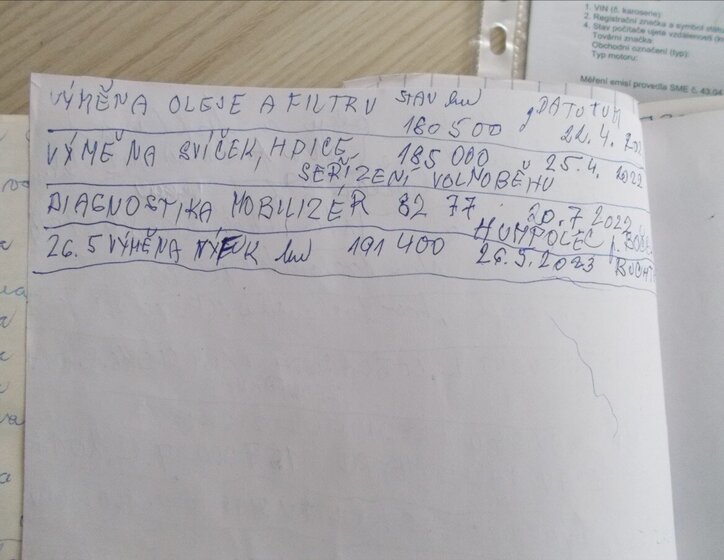 1. VIN (č. karoserie):
2. Registrační značka a symbol státu
4. Stav počítače ujeté vzdálenosti (km
Tovární značka:
Obchodní označení (typ):
Typ motoru:
Měření emisí provedla SME č. 43.04
VÝMĚŇA OLEJE A FILTRU STAV km DATUTUM
180 500 22.4.
VÝMĚŇA SVÍČEK, HDICE, 185 000 25.4. 2022
SEŘÍZENÍ VOLNOBĚHU
DIAGNOSTIKA MOBILIZÉR 82 77 20.7 2022
HUMPOLEC
26.5 VÝMĚŇA km 191 400 26.5.2023